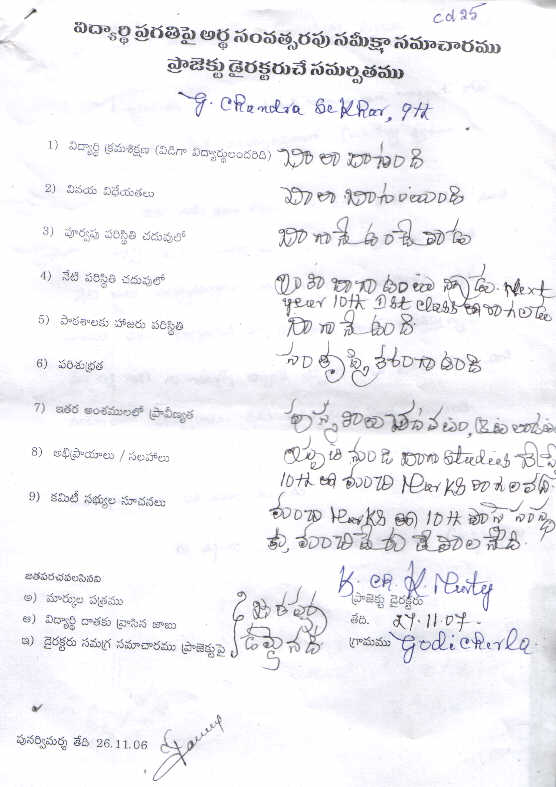 cd 25
విద్యార్థి ప్రగతిపై అర్థ సంవత్సరపు సమీక్షా సమాచారము
ప్రాజెక్టు డైరక్టరుచే సమర్పితము
G. Chandra Sekhar, 9th
1) విద్యార్థి క్రమశిక్షణ (విడిగా విద్యార్థులందరిది) చాలా బాగుంది
2) వినయ విధేయతలు చాలా బాగుంటుంది
3) పూర్వపు పరిస్థితి చదువులో బాగానే ఉండేవాడు
4) నేటి పరిస్థితి చదువులో ఇంకా బాగా ఉంటున్నాడు. Next
year 10th 1st class లో రాగలడు
5) పాఠశాలకు హాజరు పరిస్థితి బాగానే ఉంది
6) పరిశుభ్రత సంతృప్తికరంగా ఉంది
7) ఇతర అంశములలో ప్రావీణ్యత పుస్తకాలు చదవటం,
8) అభిప్రాయాలు / సలహాలు ఇప్పటి నుండి బాగా studies చేస్తే
10th లో మంచి Marks రాగలవు
9) కమిటీ సభ్యుల సూచనలు మంచి Marks తో 10th పాసై సంస్థ
కు, మంచి పేరు తేవాలనేది.
జతపరచవలసినవి
అ) మార్కుల పత్రము
ఆ) విద్యార్థి దాతకు వ్రాసిన జాబు
ఇ) డైరక్టరు సమగ్ర సమాచారము ప్రాజెక్టుపై
జతపర్చ
డమైనది
K. Ch. K. Murty
ప్రాజెక్టు డైరక్టరు
తేది. 27.11.07.
గ్రామము Godicherla.
పునర్విమర్శ తేది 26.11.06